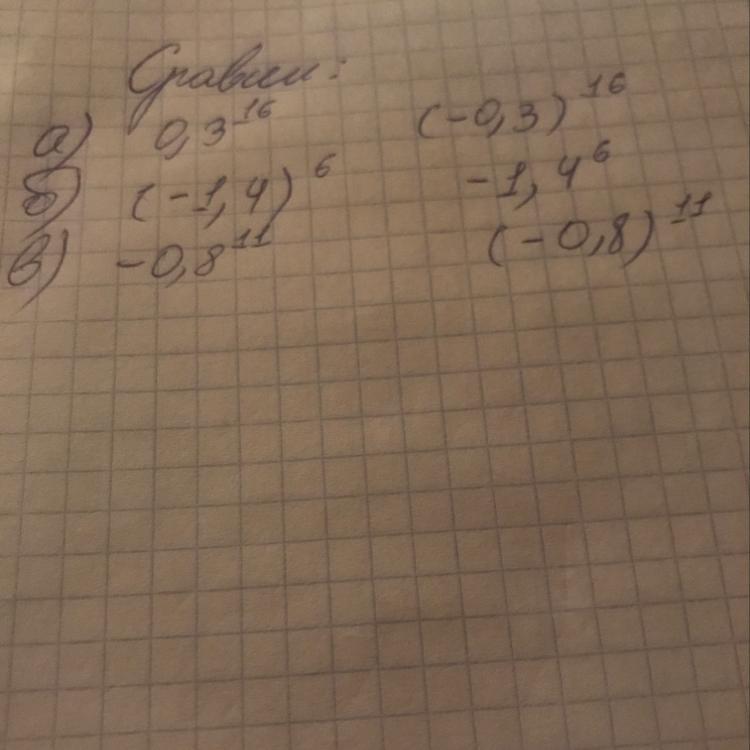 Сравни:
а) 0,3^16 (-0,3)^16
б) (-1,4)^6 -1,4^6
в) -0,8^11 (-0,8)^11